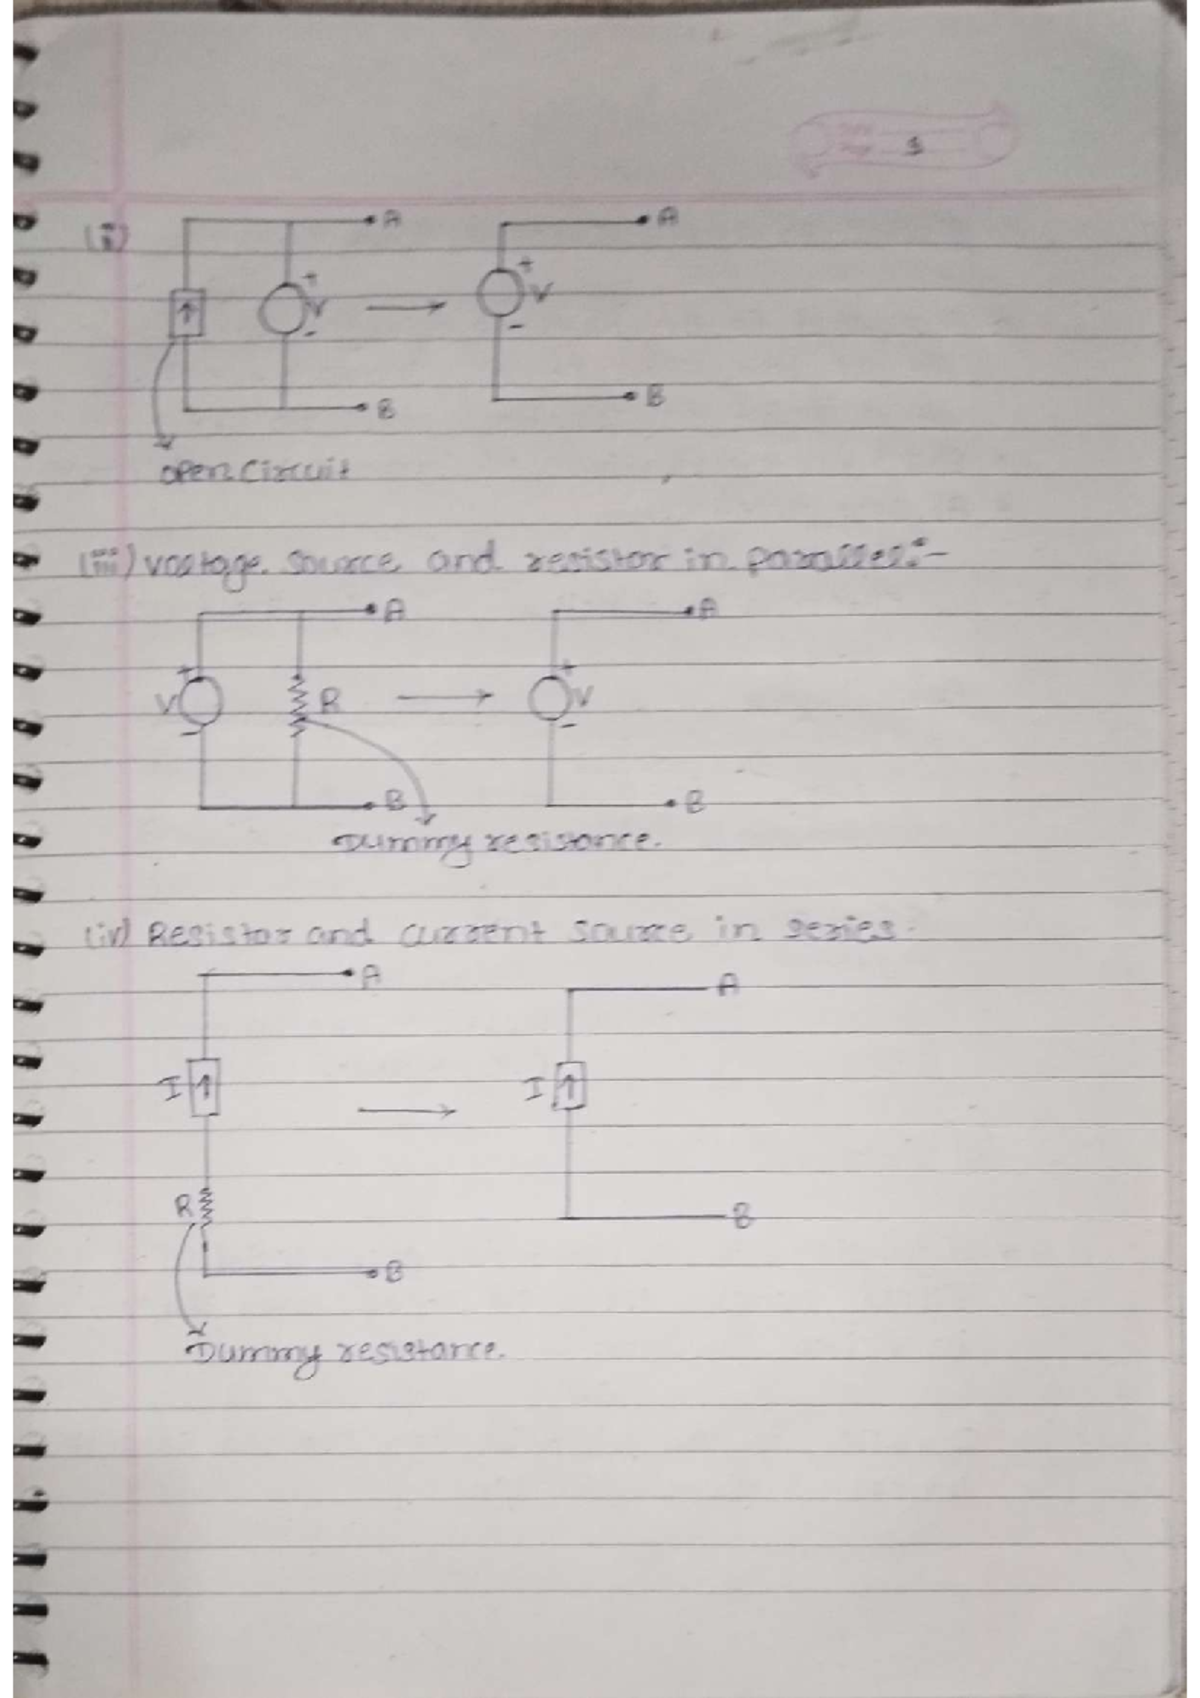 1
(ii)
A A
+ V - + V -
B B
open circuit
(iii) Voltage source and resistor in parallel:-
A A
+ V - R + V -
B B
Dummy resistance.
(iv) Resistor and current source in series.
A A
I I
R B
B
Dummy resistance.